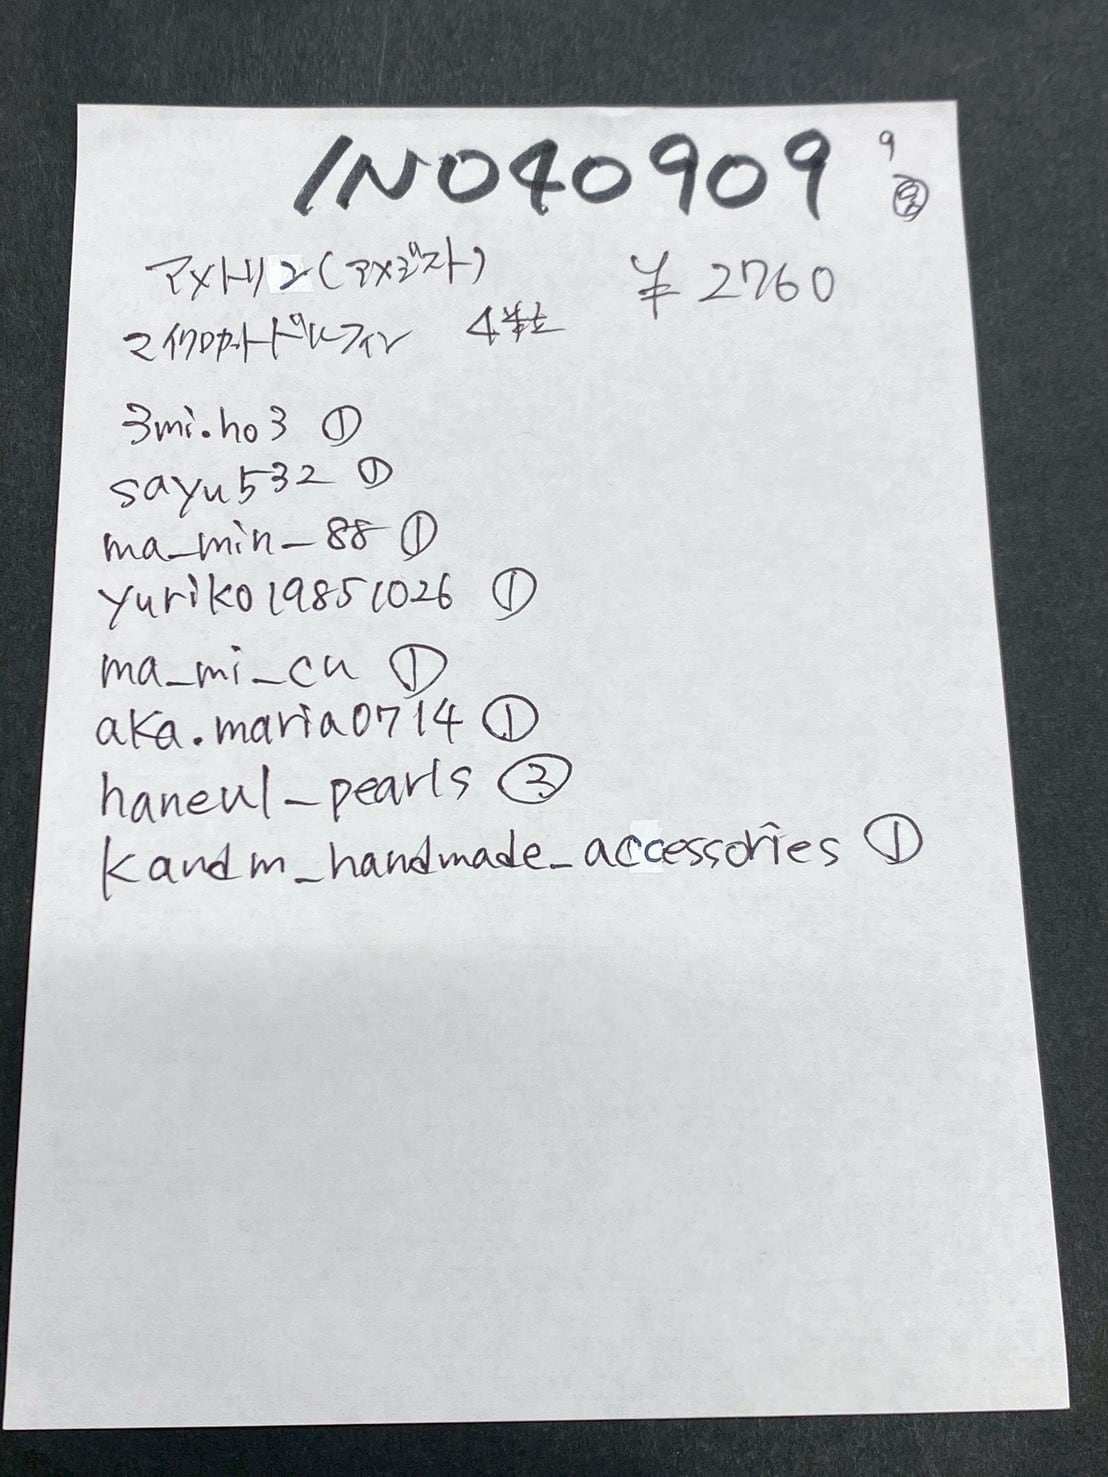 IN040909
9
アメトリン(アメジスト)
¥2760
マイクロカットドルフィン 4粒
3mi.ho3 ①
sayu532 ①
ma_min_88 ①
yuriko19851026 ①
ma_mi_cu ①
aka.maria0714 ①
haneul_pearls ③
kandm_handmade_accessories ①